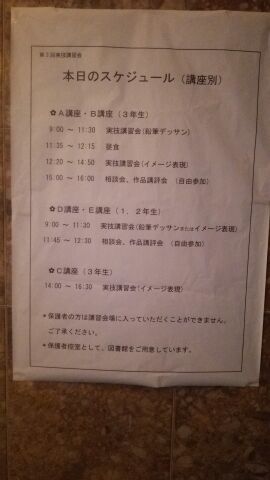 第３回実技講習会
本日のスケジュール（講座別）
✿Ａ講座・Ｂ講座（３年生）
9:00 ～ 11:30 実技講習会(鉛筆デッサン)
11:35 ～ 12:15 昼食
12:20 ～ 14:50 実技講習会(イメージ表現)
15:00 ～ 16:00 相談会、作品講評会 （自由参加）
✿Ｄ講座・Ｅ講座（１、２年生）
9:00 ～ 11:30 実技講習会(鉛筆デッサンまたはイメージ表現)
11:45 ～ 12:30 相談会、作品講評会 （自由参加）
✿Ｃ講座（３年生）
14:00 ～ 16:30 実技講習会(イメージ表現)
＊保護者の方は講習会場に入っていただくことができません。
ご了承ください。
＊保護者控室として、図書館をご用意しています。